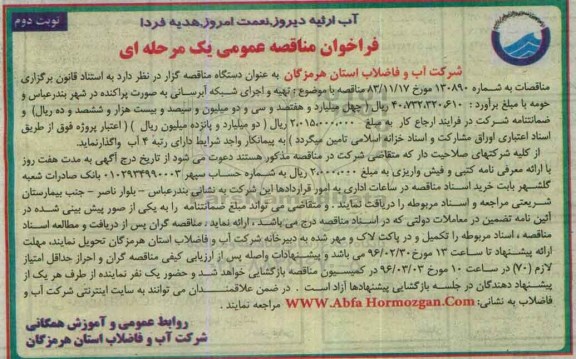 آب ارثیه دیروز،نعمت امروز،هدیه فردا
نوبت دوم
فراخوان مناقصه عمومی یک مرحله ای
شرکت آب و فاضلاب استان هرمزگان به عنوان دستگاه مناقصه گزار در نظر دارد به استناد قانون برگزاری
مناقصات به شماره ۱۳۰۸۹۰ مورخ ۸۳/۱۱/۱۷ مناقصه با موضوع : تهیه و اجرای شبکه آبرسانی به صورت پراکنده در شهر بندرعباس و
حومه با مبلغ برآورد : ۴۰،۷۳۲،۳۲۰،۶۱۰ ریال ( چهل میلیارد و هفتصد و سی و دو میلیون و سیصد و بیست هزار و ششصد و ده ریال) و
ضمانتنامه شرکت در فرایند ارجاع کار به مبلغ ۲،۰۱۵،۰۰۰،۰۰۰ ریال ( دو میلیارد و پانزده میلیون ریال ) ( اعتبار پروژه فوق از طریق
اسناد اعتباری اوراق مشارکت و اسناد خزانه اسلامی تامین میگردد ) به پیمانکار واجد شرایط دارای رتبه ۴ آب واگذارنماید.
از کلیه شرکتهای صلاحیت دار که متقاضی شرکت در مناقصه مذکور هستند دعوت می شود از تاریخ درج آگهی به مدت هفت روز
با ارائه معرفی نامه کتبی و فیش واریزی به مبلغ ۲،۰۰۰،۰۰۰ ریال به شماره حساب سپهر ۰۱۰۲۹۳۴۹۹۰۰۰۳ بانک صادرات شعبه
گلشهر بابت خرید اسناد مناقصه در ساعات اداری به امور قراردادها این شرکت به نشانی بندرعباس - بلوار ناصر - جنب بیمارستان
شریعتی مراجعه و اسناد مربوطه را دریافت نمایند . و متقاضی می تواند مبلغ ضمانتنامه را به یکی از صور پیش بینی شده در
آئین نامه تضمین در معاملات دولتی که در اسناد مناقصه درج می باشد . ارائه نماید . مناقصه گران پس از دریافت و مطالعه اسناد
مناقصه ، اسناد مربوطه را تکمیل و در پاکت لاک و مهر شده به دبیرخانه شرکت آب و فاضلاب استان هرمزگان تحویل نمایند، مهلت
ارائه پیشنهاد تا ساعت ۱۳ مورخ ۹۶/۰۲/۳۰ می باشد و پیشنهادات واصله پس از ارزیابی کیفی مناقصه گران و احراز حداقل امتیاز
لازم (۷۰) در ساعت ۱۰ مورخ ۹۶/۰۳/۰۲ در کمیسیون مناقصه بازگشایی خواهد شد و حضور یک نفر نماینده از طرف هر یک از
پیشنهاد دهندگان در جلسه بازگشایی پیشنهادها آزاد است . در ضمن علاقمندان می توانند به سایت اینترنتی شرکت آب و
فاضلاب به نشانی: WWW.Abfa Hormozgan.Com مراجعه نمایند .
روابط عمومی و آموزش همگانی
شرکت آب و فاضلاب استان هرمزگان